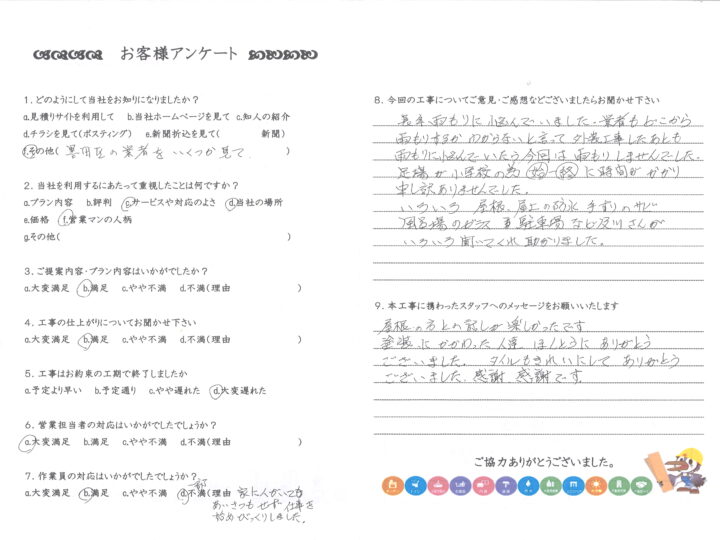 お客様アンケート
1. どのようにして当社をお知りになりましたか？
a.見積りサイトを利用して　b.当社ホームページを見て　c.知人の紹介
d.チラシを見て(ポスティング)　e.新聞折込を見て(　　　新聞)
f.その他( 墨田区の業者をいくつか見て　)
2. 当社を利用するにあたって重視したことは何ですか？
a.プラン内容　b.評判　c.サービスや対応のよさ　d.当社の場所
e.価格　f.営業マンの人柄
g.その他(　　　)
3. ご提案内容・プラン内容はいかがでしたか？
a.大変満足　b.満足　c.やや不満　d.不満(理由　　　)
4. 工事の仕上がりについてお聞かせ下さい
a.大変満足　b.満足　c.やや不満　d.不満(理由　　　)
5. 工事はお約束の工期で終了しましたか
a.予定より早い　b.予定通り　c.やや遅れた　d.大変遅れた
6. 営業担当者の対応はいかがでしたでしょうか？
a.大変満足　b.満足　c.やや不満　d.不満(理由　　　)
7. 作業員の対応はいかがでしたでしょうか？
a.大変満足　b.満足　c.やや不満　d.不満(理由 家に人がいても
あいさつもせず 仕事を
始め びっくりしました。
8. 今回の工事についてご意見・ご感想などございましたらお聞かせ下さい
長年雨もりに悩んでいました、業者もどこから
雨もりするか わからないと言って 外装工事したあとも
雨もりに悩んでいたら 今回は 雨もりしませんでした。
足場が小学校の為 始-終に時間がかかり
申し訳ありませんでした。
いろいろ 屋根、屋上の防水 手すりのサビ
風呂場のガラス 駐車場など 及川さんが
いろいろ聞いてくれ 助かりました。
9. 本工事に携わったスタッフへのメッセージをお願いいたします
屋根の方との話しが楽しかったです
塗装にかかわった人達 ほんとうに ありがとう
ございました。 タイルもきれいにして ありがとう
ございました。感謝、感謝です。
ご協力ありがとうございました。